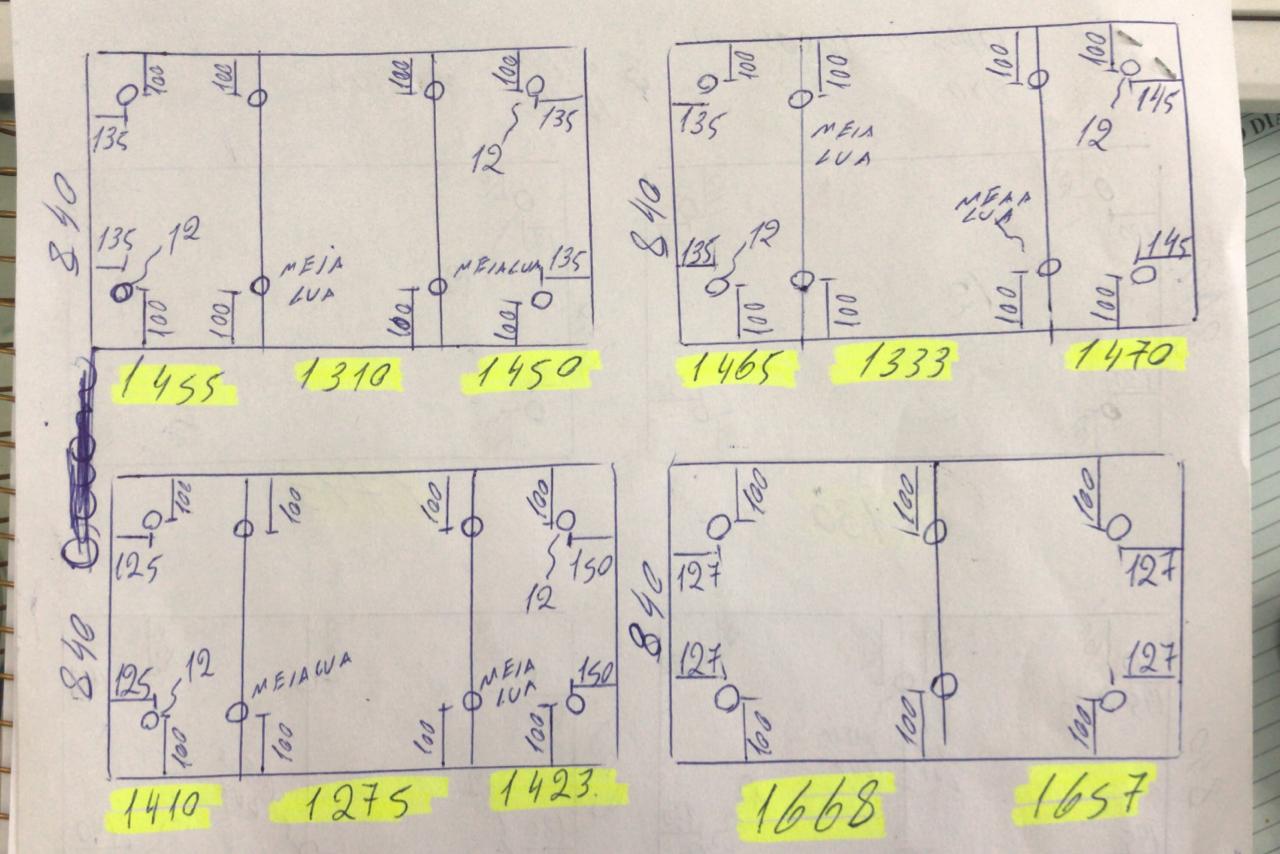 100
100
100
100
135
135
12
840
135
12
MEIA
LUA
MEIALUA
135
100
100
100
100
1455
1310
1450
100
100
100
100
135
145
MEIA
LUA
12
840
MEIA
LUA
135
12
145
100
100
100
100
1465
1333
1470
100
100
100
100
125
150
12
840
125
12
MEIALUA
MEIA
LUA
150
100
100
100
100
1410
1275
1423.
100
100
100
127
127
840
127
127
100
100
100
1668
1657
DIA